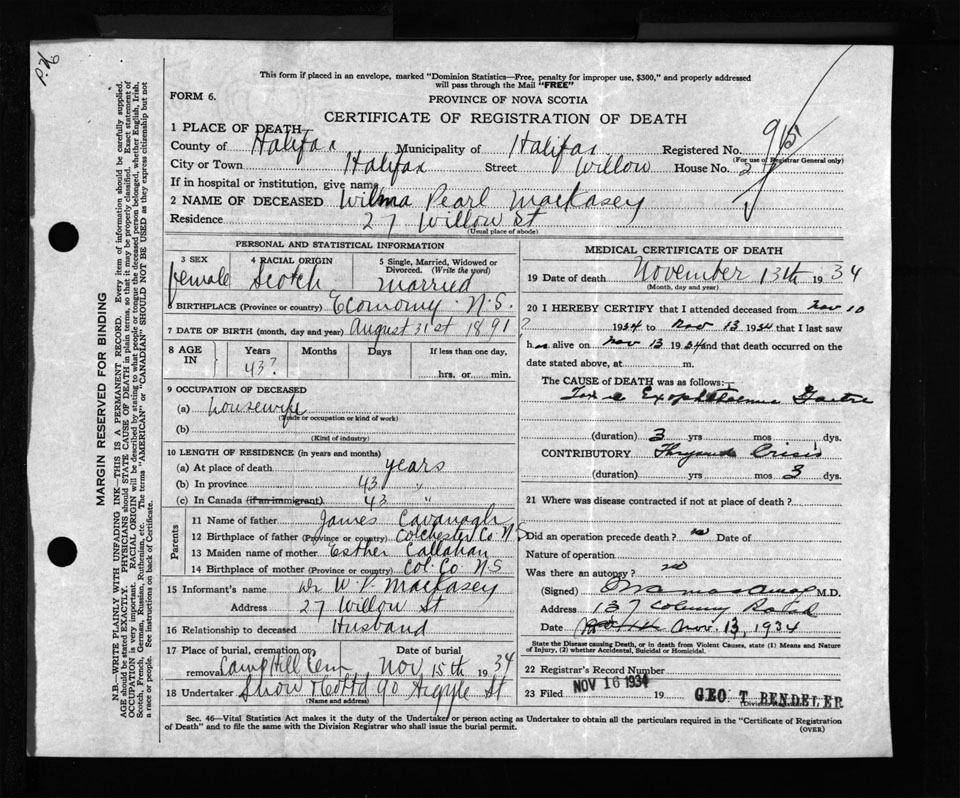 P.H.
This form if placed in an envelope, marked "Dominion Statistics—Free, penalty for improper use, $300," and properly addressed
will pass through the Mail "FREE"
FORM 6.
PROVINCE OF NOVA SCOTIA
CERTIFICATE OF REGISTRATION OF DEATH
1 PLACE OF DEATH
County of Halifax Municipality of Halifax Registered No. 915
(For use of Registrar General only)
City or Town Halifax Street Willow House No. 27
If in hospital or institution, give name
2 NAME OF DECEASED Wilma Pearl MacKasey
Residence 27 Willow St
(Usual place of abode)
PERSONAL AND STATISTICAL INFORMATION
3 SEX 4 RACIAL ORIGIN 5 Single, Married, Widowed or
Divorced. (Write the word)
female Scotch married
6 BIRTHPLACE (Province or country) Economy N.S.
7 DATE OF BIRTH (month, day and year) August 31st 1891 ?
8 AGE IN Years Months Days If less than one day,
43? hrs. or min.
9 OCCUPATION OF DECEASED
(a) housewife
(Trade or occupation or kind of work)
(b)
(Kind of industry)
10 LENGTH OF RESIDENCE (in years and months)
(a) At place of death years
(b) In province 43 "
(c) In Canada (if an immigrant) 43 "
Parents
11 Name of father James Cavanagh
12 Birthplace of father (Province or country) Colchester Co. N.S
13 Maiden name of mother Esther Callahan
14 Birthplace of mother (Province or country) Col. Co N.S
15 Informant's name Dr W. V. MacKasey
Address 27 Willow St
16 Relationship to deceased Husband
17 Place of burial, cremation or removal Date of burial
Camp Hill Cem Nov 15th 1934
18 Undertaker Snow & Co Ltd 90 Argyle St
(Name and address)
MEDICAL CERTIFICATE OF DEATH
19 Date of death November 13th 1934
(Month, day and year)
20 I HEREBY CERTIFY that I attended deceased from Nov 10
1934 to Nov 13 1934 that I last saw
h er alive on Nov 13 1934 and that death occurred on the
date stated above, at m.
The CAUSE of DEATH was as follows:
Toxic Exophthalmic Goitre
(duration) 3 yrs mos dys.
CONTRIBUTORY Thyroid Crisis
(duration) yrs mos 3 dys.
21 Where was disease contracted if not at place of death?
Did an operation precede death? no Date of
Nature of operation
Was there an autopsy? no
(Signed) M.D.
Address 137
Date Nov. 13, 1934
State the Disease causing Death, or in death from Violent Causes, state (1) Means and Nature
of Injury, (2) whether Accidental, Suicidal or Homicidal.
22 Registrar's Record Number
23 Filed NOV 16 1934 19 GEO. T. BENDELER
(Division Registrar)
Sec. 46—Vital Statistics Act makes it the duty of the Undertaker or person acting as Undertaker to obtain all the particulars required in the "Certificate of Registration
of Death" and to file the same with the Division Registrar who shall issue the burial permit.
(OVER)
MARGIN RESERVED FOR BINDING
N.B.—WRITE PLAINLY WITH UNFADING INK—THIS IS A PERMANENT RECORD. Every item of information should be carefully supplied.
AGE should be stated EXACTLY. PHYSICIANS should STATE CAUSE OF DEATH in plain terms, so that it may be properly classified. Exact statement of
OCCUPATION is very important. RACIAL ORIGIN will be described by stating to what people or tongue the deceased person belonged, whether English, Irish,
Scotch, French, German, Russian, Ruthenian, etc. The terms "AMERICAN" or "CANADIAN" SHOULD NOT BE USED as they express citizenship but not
a race or people. See instructions on back of Certificate.